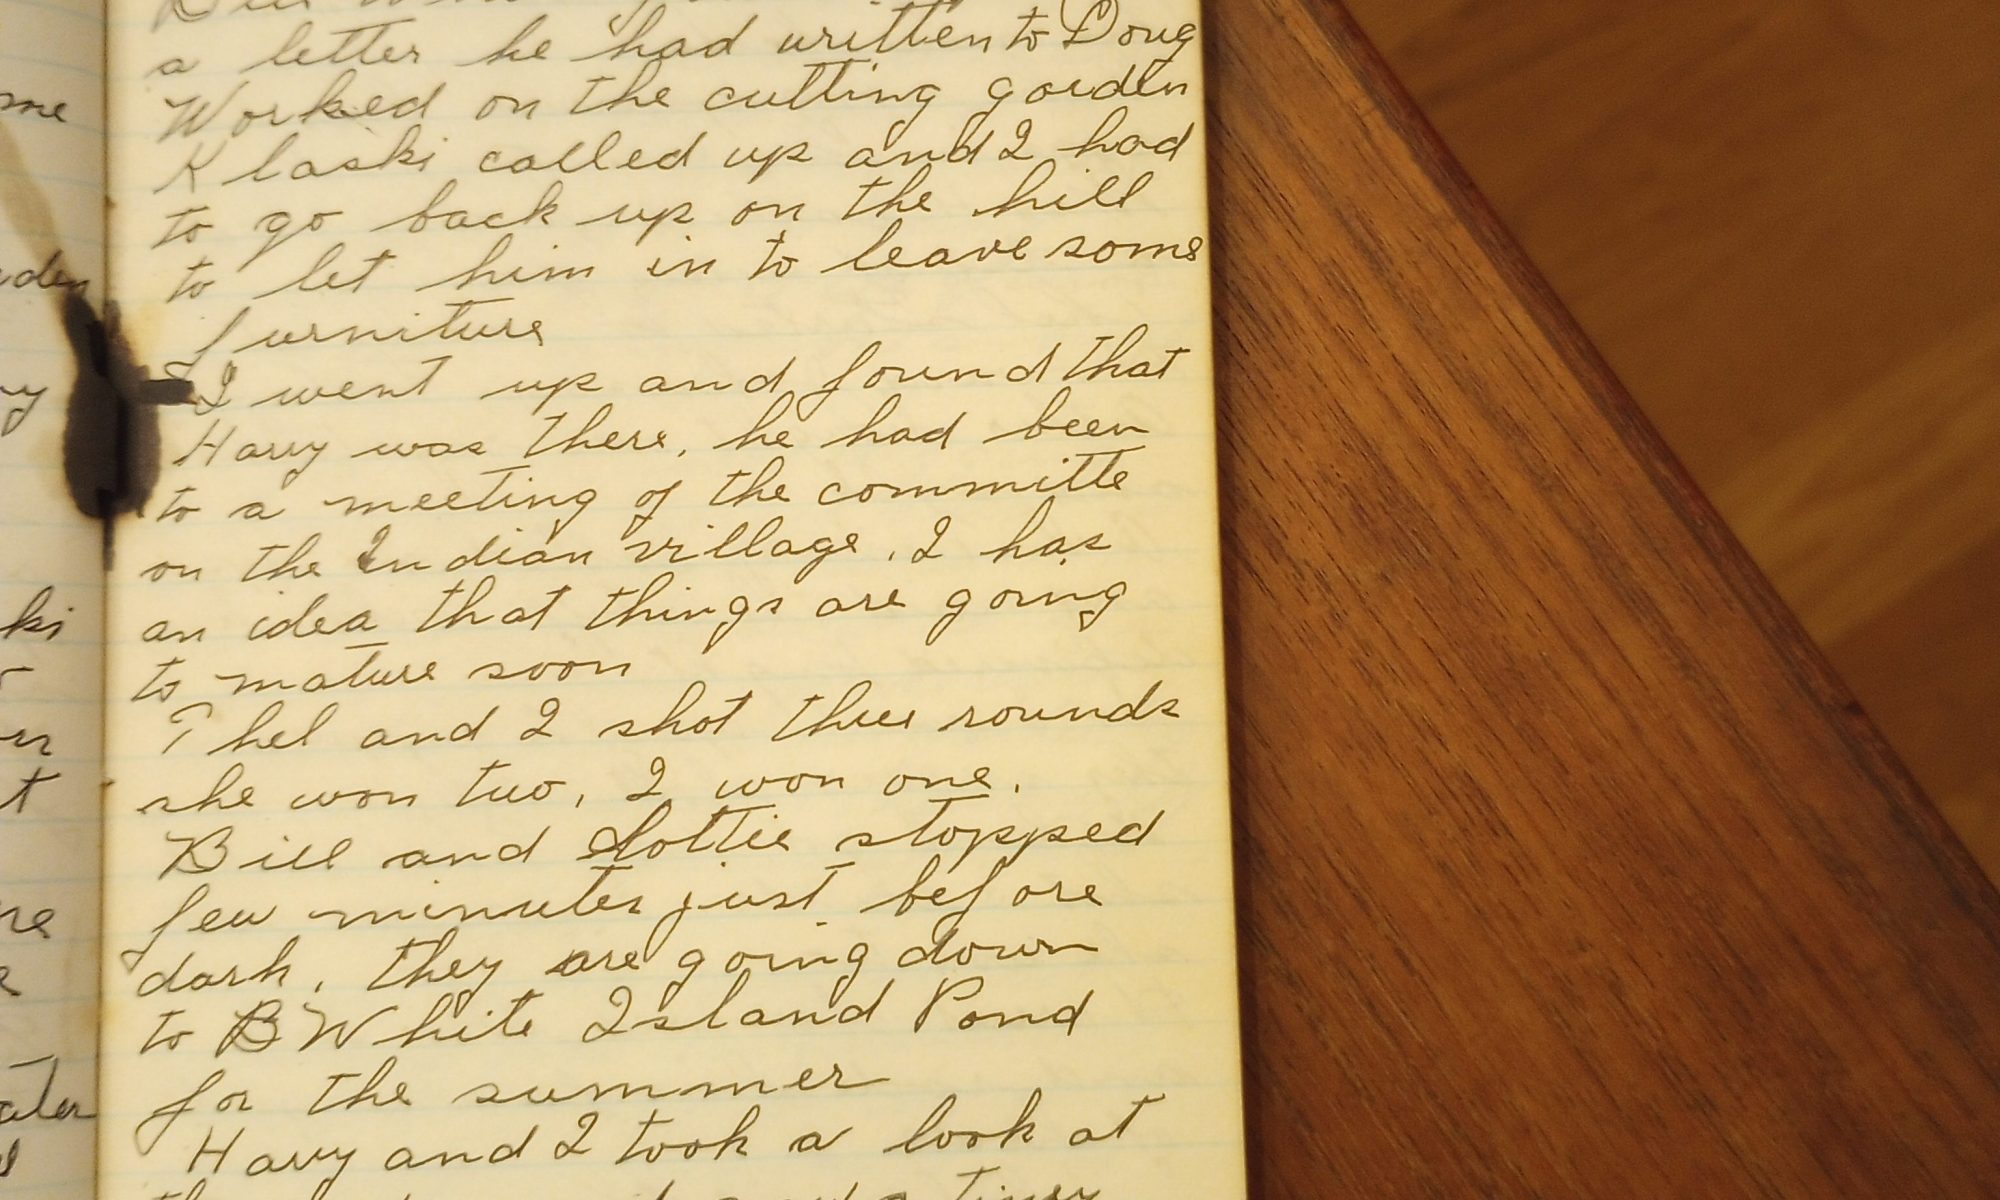 a letter he had written to Doug
Worked on the cutting garden
Klaski called up and I had
to go back up on the hill
to let him in to leave some
furniture
I went up and found that
Harry was there, he had been
to a meeting of the committe
on the Indian village. I has
an idea that things are going
to mature soon
Thel and I shot three rounds
she won two, I won one.
Bill and Lottie stopped
few minutes just before
dark, they are going down
to B White Island Pond
for the summer
Harry and I took a look at